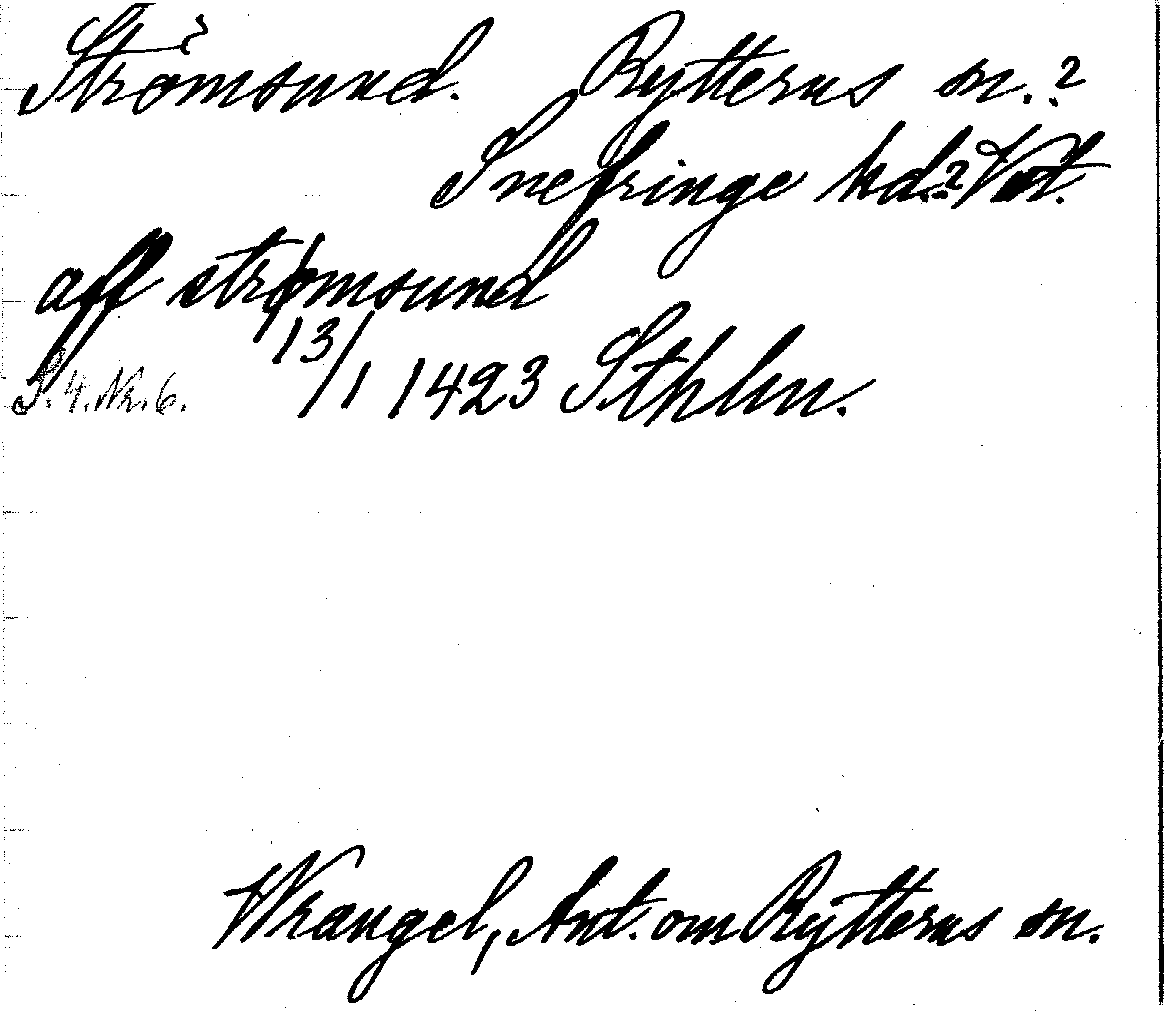 Strömsund. Rytterus sn.?
Snefringe hd.? Vstm.
aff strømsund
S. 4. Nr. 6. 13/1 1423 Sthlm.
Wrangel, Ant. om Rytterns sn.